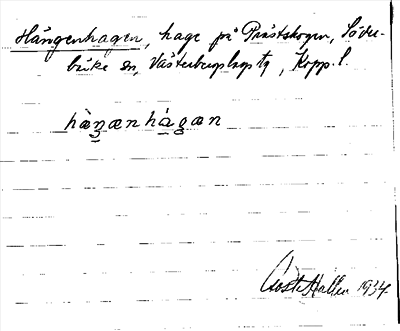 Hängenhagen, hage på Prästskogen, Söder-
bärke sn, Västerbergslags tg, Kopp. l.
hàŋænhàgæn
Gösta Hallén 1934.